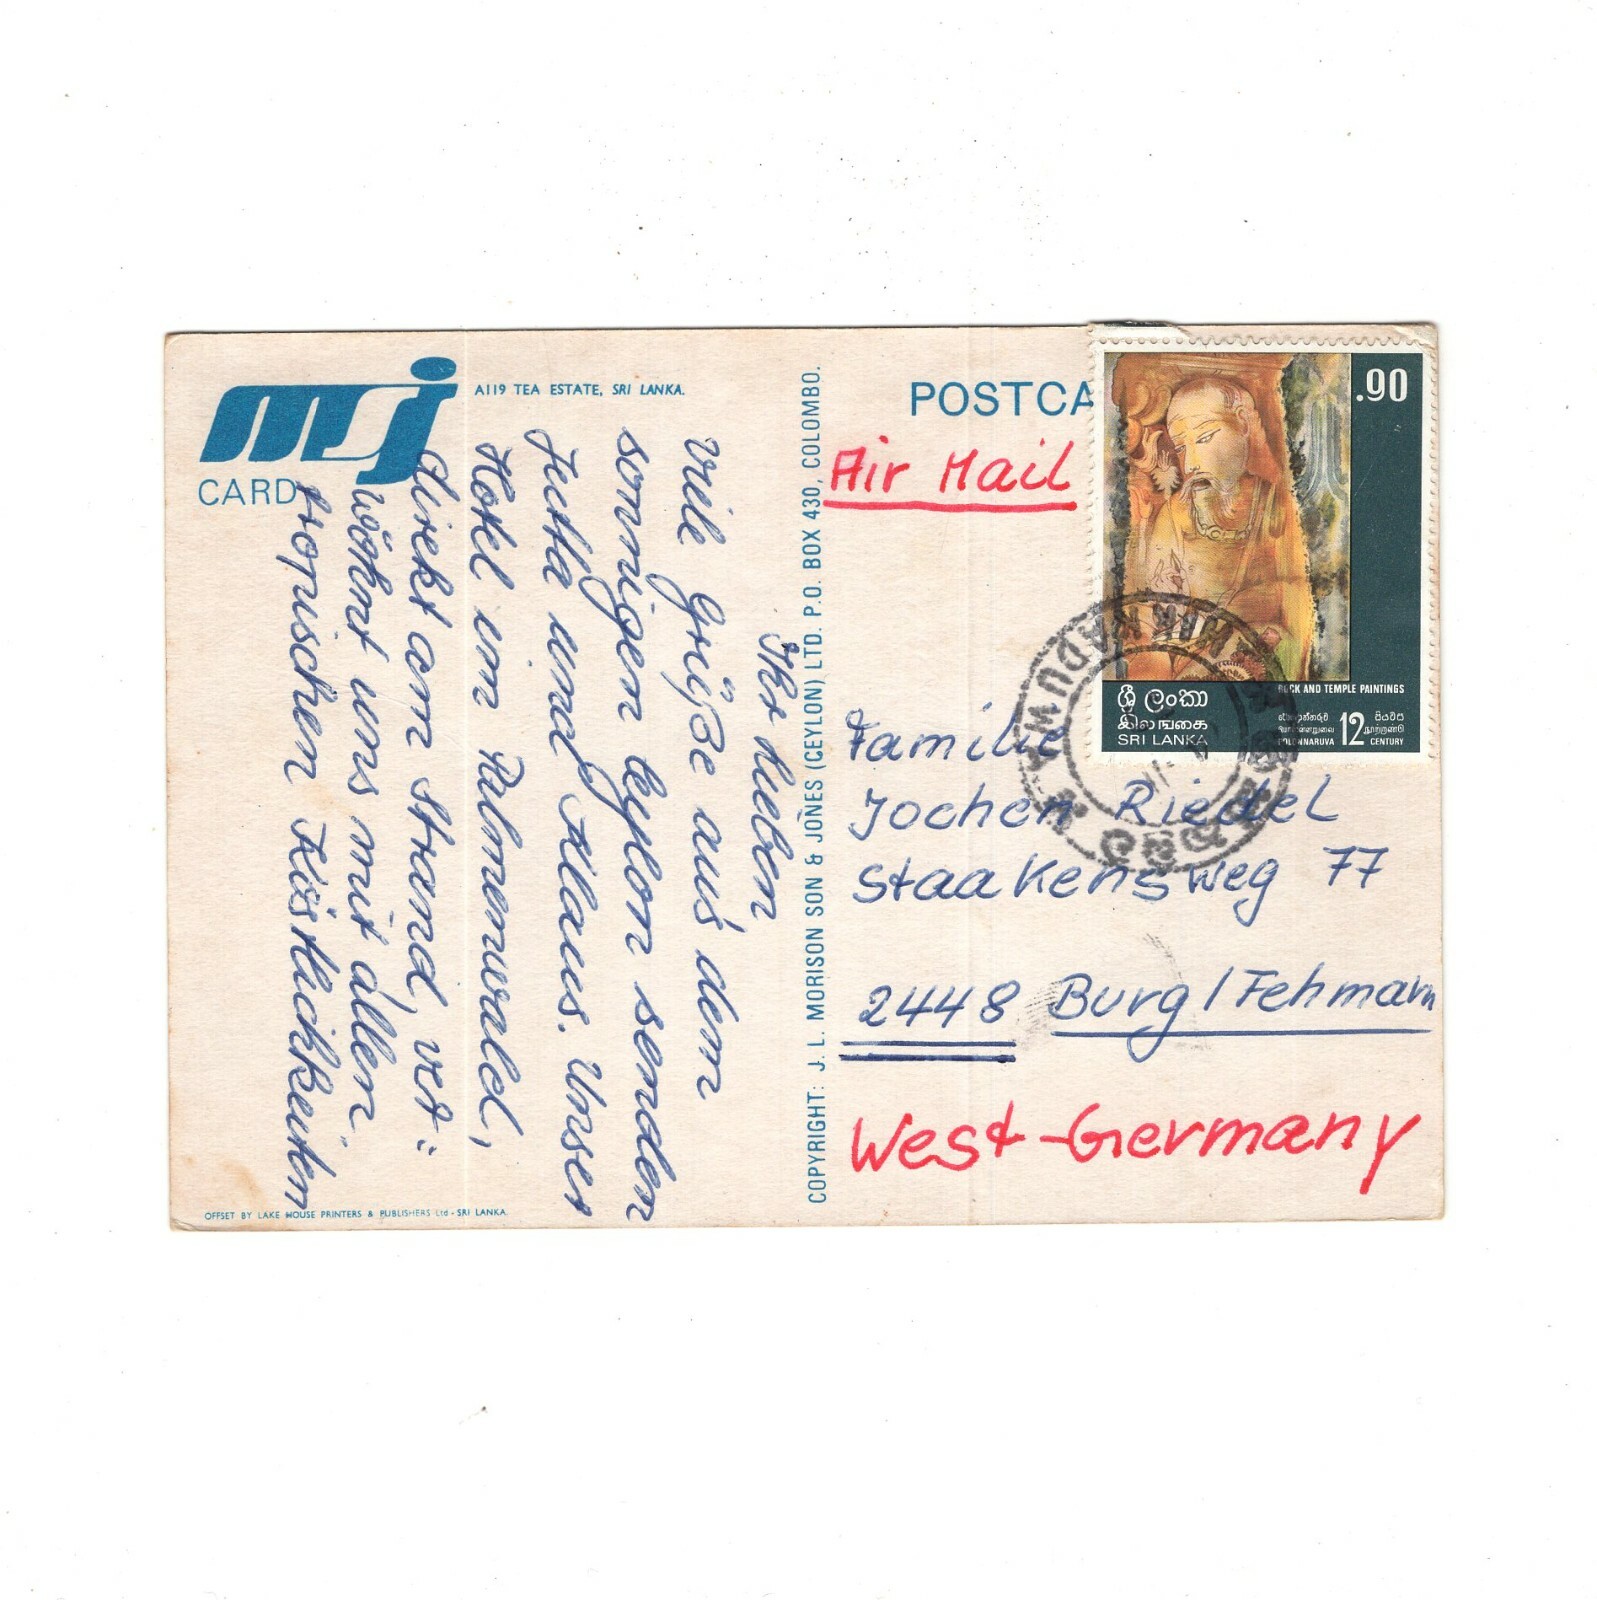 msj
CARD
A119 TEA ESTATE, SRI LANKA.
Ihr Lieben,
viele Grüße aus dem
sonnigen Ceylon senden
Jutta und Klaus. Unser
Hotel im Palmenwald,
direkt am Strand, ver=
wöhnt uns mit allen
tropischen Köstlichkeiten
OFFSET BY LAKE HOUSE PRINTERS & PUBLISHERS Ltd - SRI LANKA.
COPYRIGHT: J. L. MORISON SON & JONES (CEYLON) LTD. P.O. BOX 430, COLOMBO.
POSTCA
Air Mail
.90
ROCK AND TEMPLE PAINTINGS
ශ්‍රී ලංකා
இலங்கை
SRI LANKA
POLONNARUVA 12 CENTURY
Familie
Jochen Riedel
Staakensweg 77
2448 Burg/Fehmarn
West-Germany